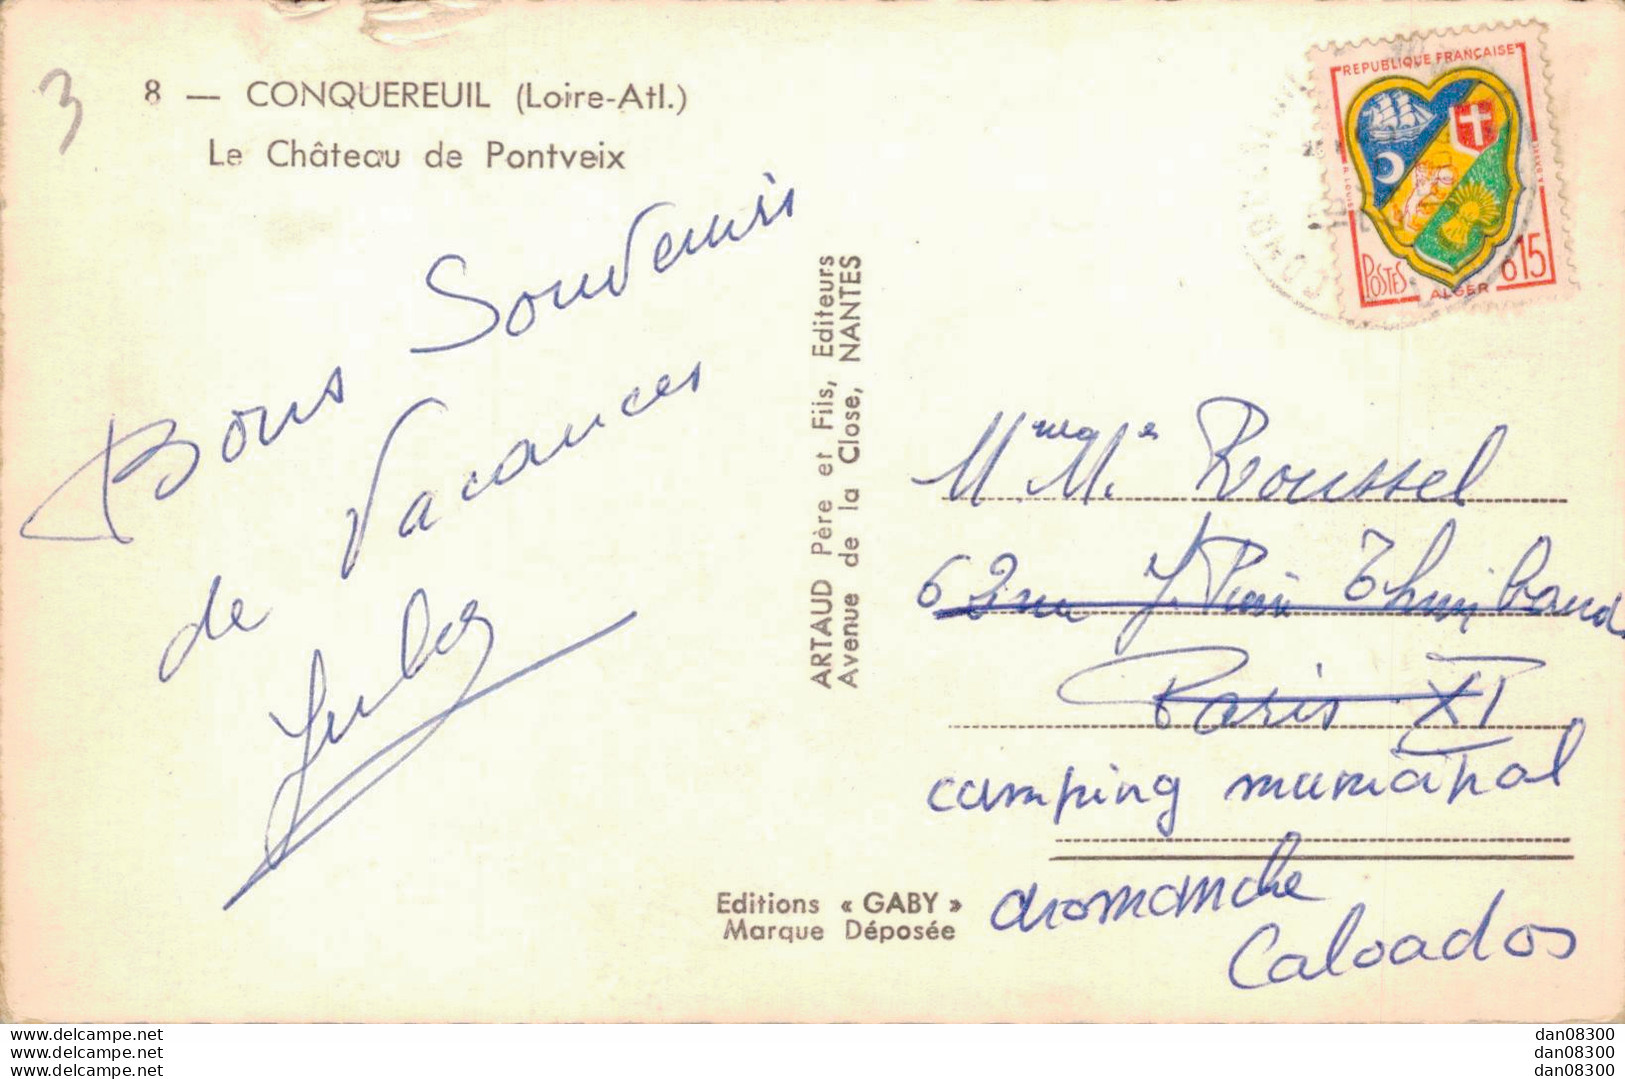 3
8 — CONQUEREUIL (Loire-Atl.)
Le Château de Pontveix
Bons Souvenirs
de Vacances
ARTAUD Père et Fils, Editeurs
Avenue de la Close, NANTES
Editions « GABY »
Marque Déposée
REPUBLIQUE FRANÇAISE
POSTES
ALGER
0 15
Roussel
62 rue J. Pierre Thimbaud
Paris XI
camping municipal
aromanche
Calvados
www.delcampe.net
www.delcampe.net
www.delcampe.net
dan08300
dan08300
dan08300